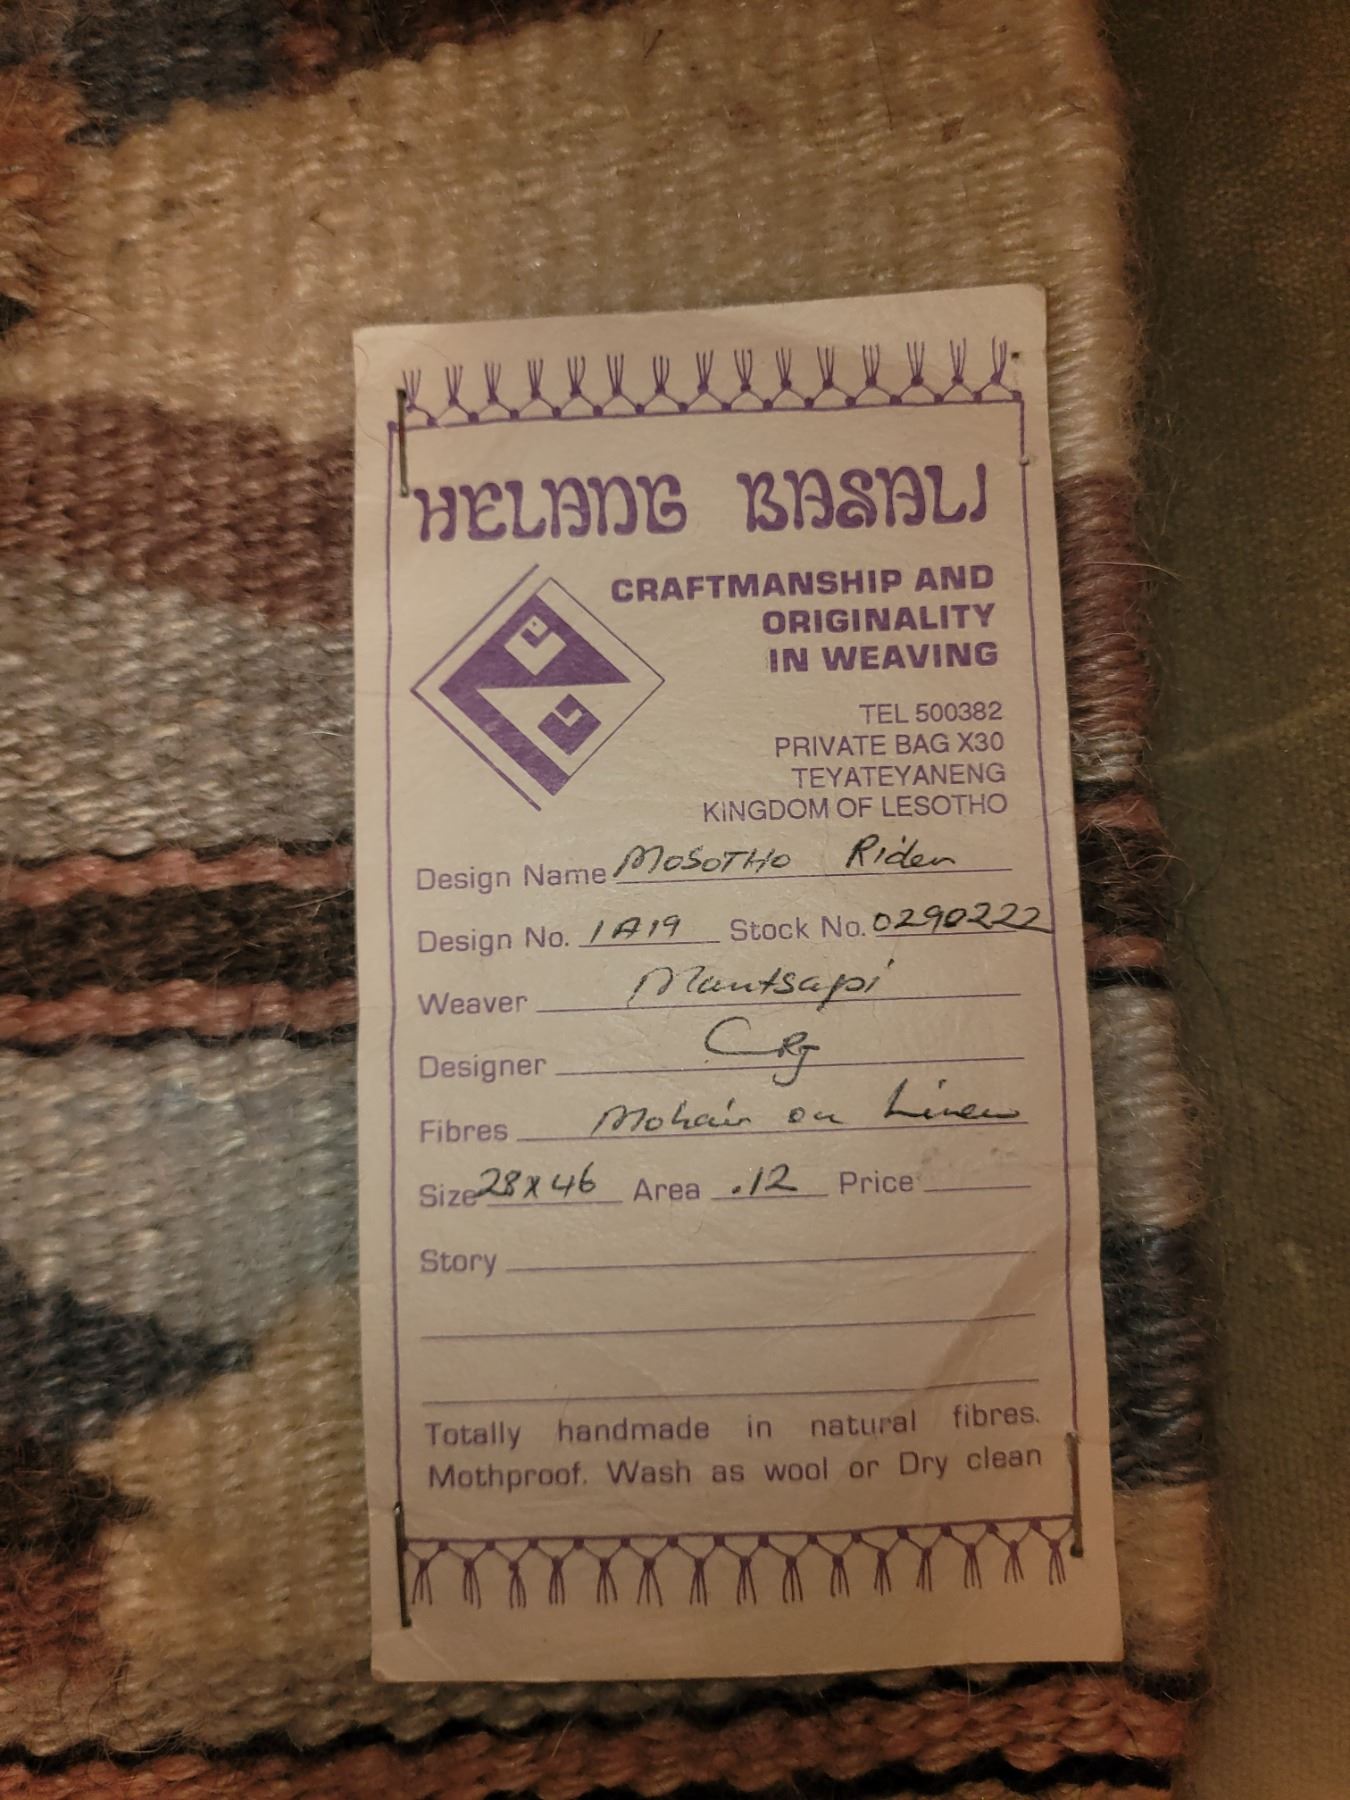 HELANG BASALI
CRAFTMANSHIP AND
ORIGINALITY
IN WEAVING
TEL 500382
PRIVATE BAG X30
TEYATEYANENG
KINGDOM OF LESOTHO
Design Name MOSOTHO Rider
Design No. 1A19 Stock No. 0290222
Weaver Mantsapi
Designer CRJ
Fibres Mohair on Linen
Size 28x46 Area .12 Price
Story
Totally handmade in natural fibres.
Mothproof. Wash as wool or Dry clean